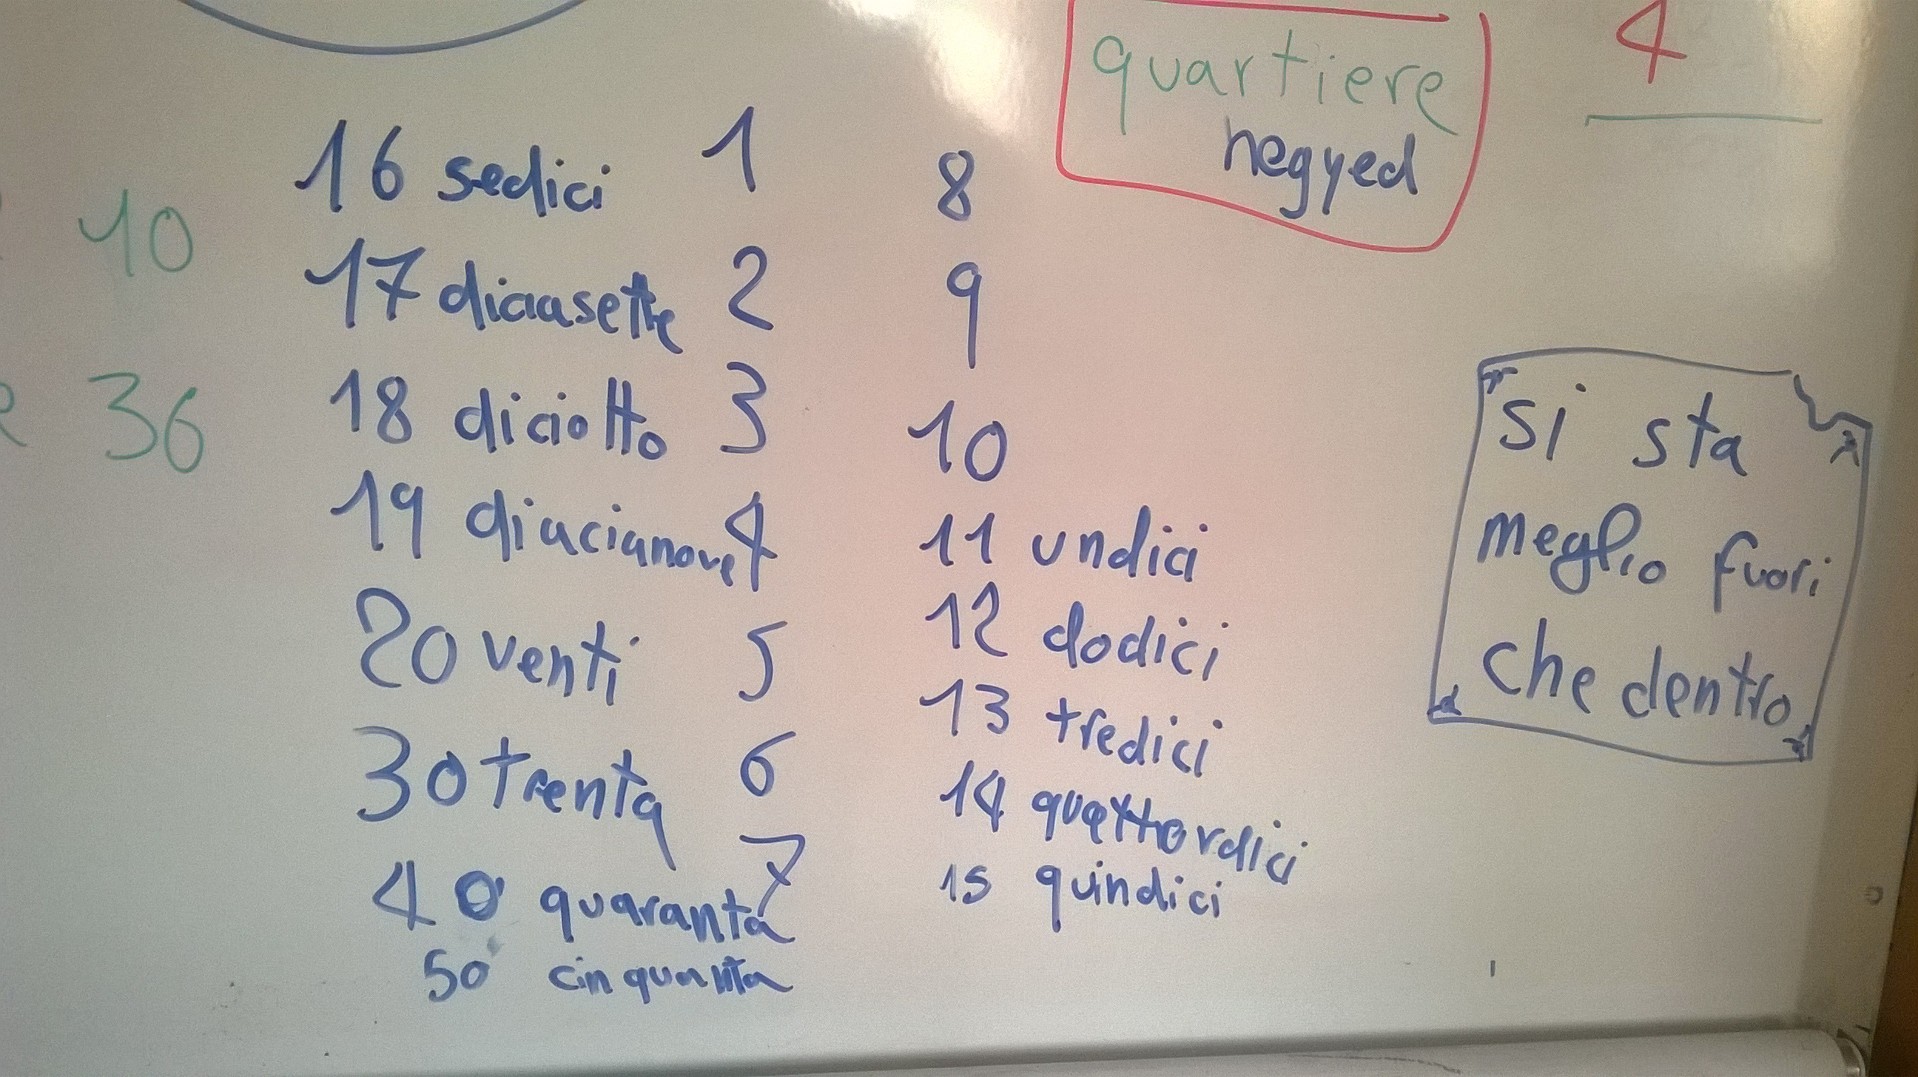 quartiere
negyed
4
10
36
16 sedici
17 diciasette
18 diciotto
19 diacianove
20 venti
30 trenta
40 quaranta
50 cinquanta
1
2
3
4
5
6
7
8
9
10
11 undici
12 dodici
13 tredici
14 quattordici
15 quindici
si sta
meglio fuori
che dentro